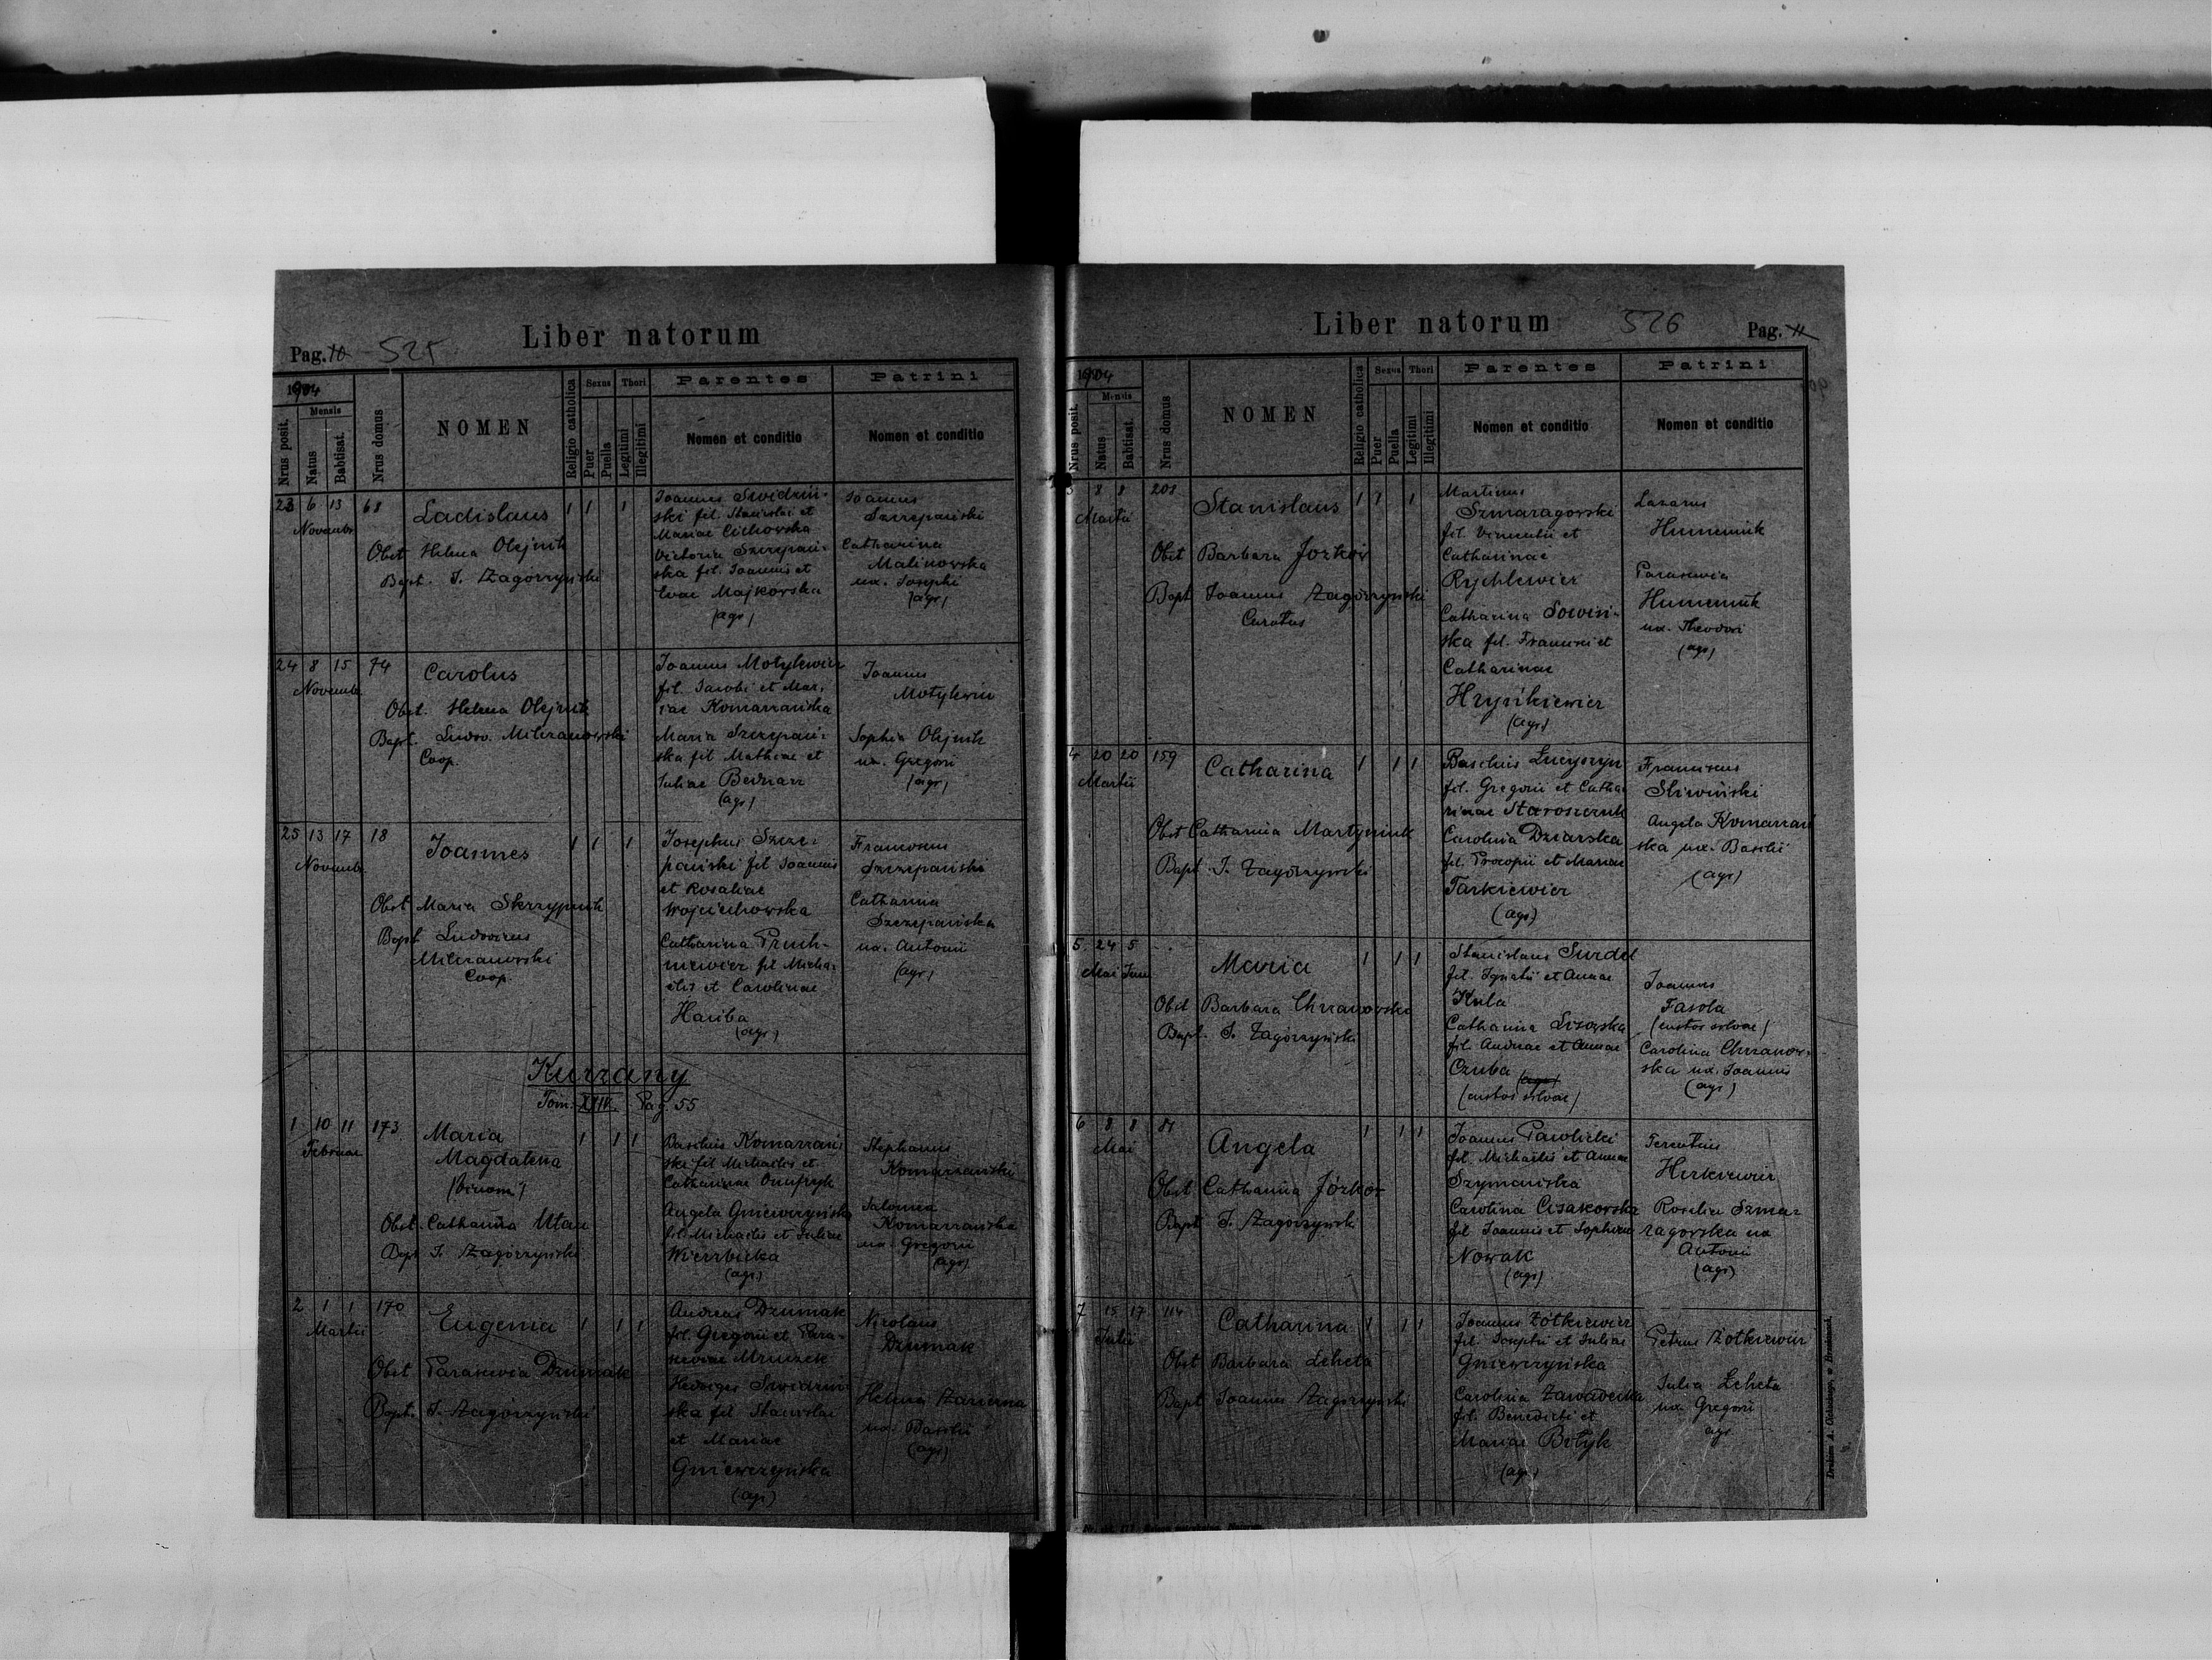 Liber natorum
Pag. 10 525
1904
Nrus posit.
Mensis
Natus
Babtisat.
Nrus domus
NOMEN
Religio catholica
Sexus
Puer
Puella
Thori
Legitimi
Illegitimi
Parentes
Nomen et conditio
Patrini
Nomen et conditio
23 6 13 68
Novemb
Ladislaus
1 1 1
Obst Helena Olejnik
Bapt. I. Zagórzyński
Joannes Swidziń-
ski fil. Stanislai et
Mariae Cichowska
Victoria Szczepań-
ska fil. Joannis et
Evae Majkowska
(agr)
Joannes
Szczepański
Catharina
Malinowska
ux. Josephi
(agr)
24 8 15 74
Novemb
Carolus
Obst. Helena Olejnik
Bapt. Ludov. Milczanowski
Coop.
Joannes Motylewicz
fil. Jacobi et Mar-
iae Komarzańska
Maria Szczepań-
ska fil Mathiae et
Juliae Bednarz
(agr)
Joannes
Motylewicz
Sophia Olejnik
ux. Gregorii
(agr)
25 13 17 18
Novemb
Joannes
1 1 1
Obst Maria Skrzypnik
Bapt Ludovicus
Milczanowski
Coop.
Josephus Szcze-
pański fil Joannis
et Rosaliae
Wojciechowska
Catharina Pruch-
niewicz fil Micha-
elis et Carolinae
Hariba
(agr)
Franciscus
Szczepański
Catharina
Szczepańska
ux. Antonii
(agr)
Kurzany
Tom. XVIII. Pag. 55
1 10 11 173
Februar
Maria
Magdalena
(binom)
1 1 1
Obst. Catharina Utan
Bapt I. Zagórzyński
Basilius Komarzań
ski fil Michaelis et
Catharinae Onufryk
Angela Gniewczyńska
fil. Michaelis et Juliae
Wierzbicka
(agr)
Stephanus
Komarzański
Salomea
Komarzańska
ux. Gregorii
(agr)
2 1 1 170
Martii
Eugenia
1 1 1
Obst Parascevia Dziumak
Bapt. I. Zagórzyński
Andreas Dziumak
fil. Gregorii et Para-
sceviae Mruczek
Hedviges Swidziń
ska fil Stanislai
et Mariae
Gniewczyńska
(agr)
Nicolaus
Dziumak
Helena
ux. Basilii
(agr)
Liber natorum 526 Pag. 11
1904
Nrus posit.
Mensis
Natus
Babtisat.
Nrus domus
NOMEN
Religio catholica
Sexus
Puer
Puella
Thori
Legitimi
Illegitimi
Parentes
Nomen et conditio
Patrini
Nomen et conditio
3 8 8 201
Martii
Stanislaus
1 1 1
Obst Barbara Jozków
Bapt Joannes Zagórzyński
Curatus
Martinus
Szmaragowski
fil. Vincentii et
Catharinae
Rychlewicz
Catharina Sowiń-
ska fil. Francisci et
Catharinae
Hryńkiewicz
(agr)
Lazarus
Humeniuk
Parascevia
Humeniuk
ux. Theodori
(agr)
4 20 20 159
Martii
Catharina
1 1 1
Obst Catharina Martyniuk
Bapt I. Zagórzyński
Basilius Łucyszyn
fil. Gregorii et Catha
rinae Staroszczuk
Carolina Dziarska
fil. Procopii et Mariae
Tarkiewicz
(agr)
Franciscus
Śliwiński
Angela Komarzań
ska ux. Basilii
(agr)
5. 24 5
Mai Juni
Maria
1 1 1
Obst Barbara Chrzanowska
Bapt I. Zagórzyński
Stanislaus Surdel
fil. Ignatii et Annae
Kula
Catharina Lisowska
fil. Andreae et Annae
Czuba (agr)
(custos silvae)
Joannes
Fasola
(custos silvae)
Carolina Chrzanow-
ska ux. Joannis
(agr)
6 8 8 81
Mai
Angela
1 1 1
Obst Catharina Józków
Bapt I. Zagórzyński
Joannes Pawlicki
fil. Michaelis et Annae
Szymańska
Carolina Cisakowska
fil Joannis et Sophiae
Nowak
(agr)
Terentius
Herkiewicz
Rosalia Szma-
ragowska ux
Antonii
(agr)
7 15 17 114
Julii
Catharina
1 1 1
Obst Barbara Leheta
Bapt Joannes Zagórzyński
Joannes Żołkiewicz
fil. Josephi et Juliae
Gniewczyńska
Carolina Zawadecka
fil. Benedicti et
Mariae Botyk
(agr)
Petrus Żołkiewicz
Julia Leheta
ux. Gregorii
agr